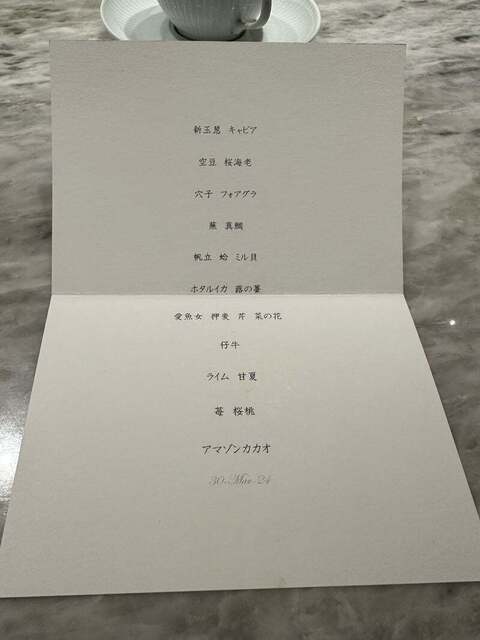 新玉葱 キャビア
空豆 桜海老
穴子 フォアグラ
蕪 真鯛
帆立 蛤 ミル貝
ホタルイカ 蕗の薹
愛魚女 押麦 芹 菜の花
仔牛
ライム 甘夏
苺 桜桃
アマゾンカカオ
30. Mar. 24